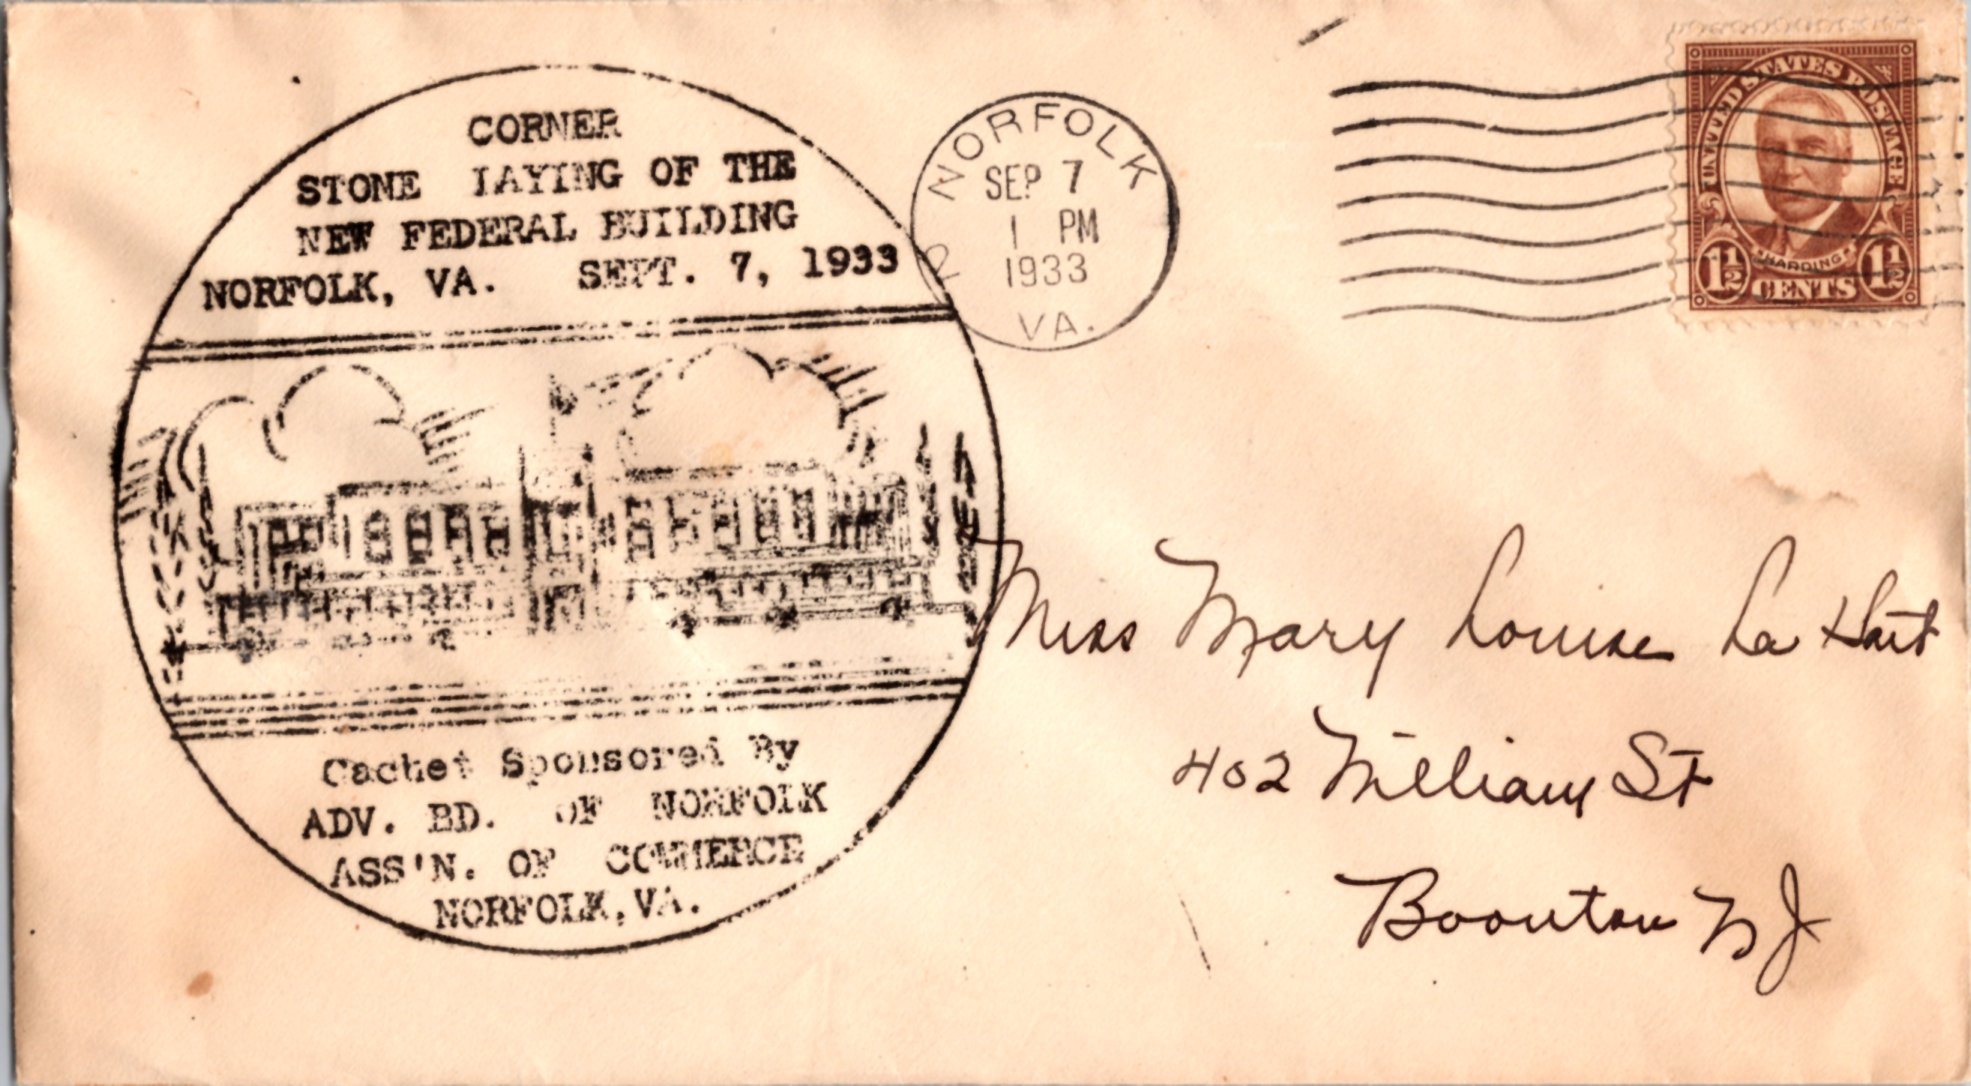 CORNER
STONE LAYING OF THE
NEW FEDERAL BUILDING
NORFOLK, VA. SEPT. 7, 1933
Cachet Sponsored By
ADV. BD. OF NORFOLK
ASS'N. OF COMMERCE
NORFOLK, VA.
NORFOLK
SEP 7
1 PM
1933
2
VA.
UNITED STATES POSTAGE
HARDING
1½ CENTS 1½
Miss Mary Louise La
402 William St
Boonton NJ